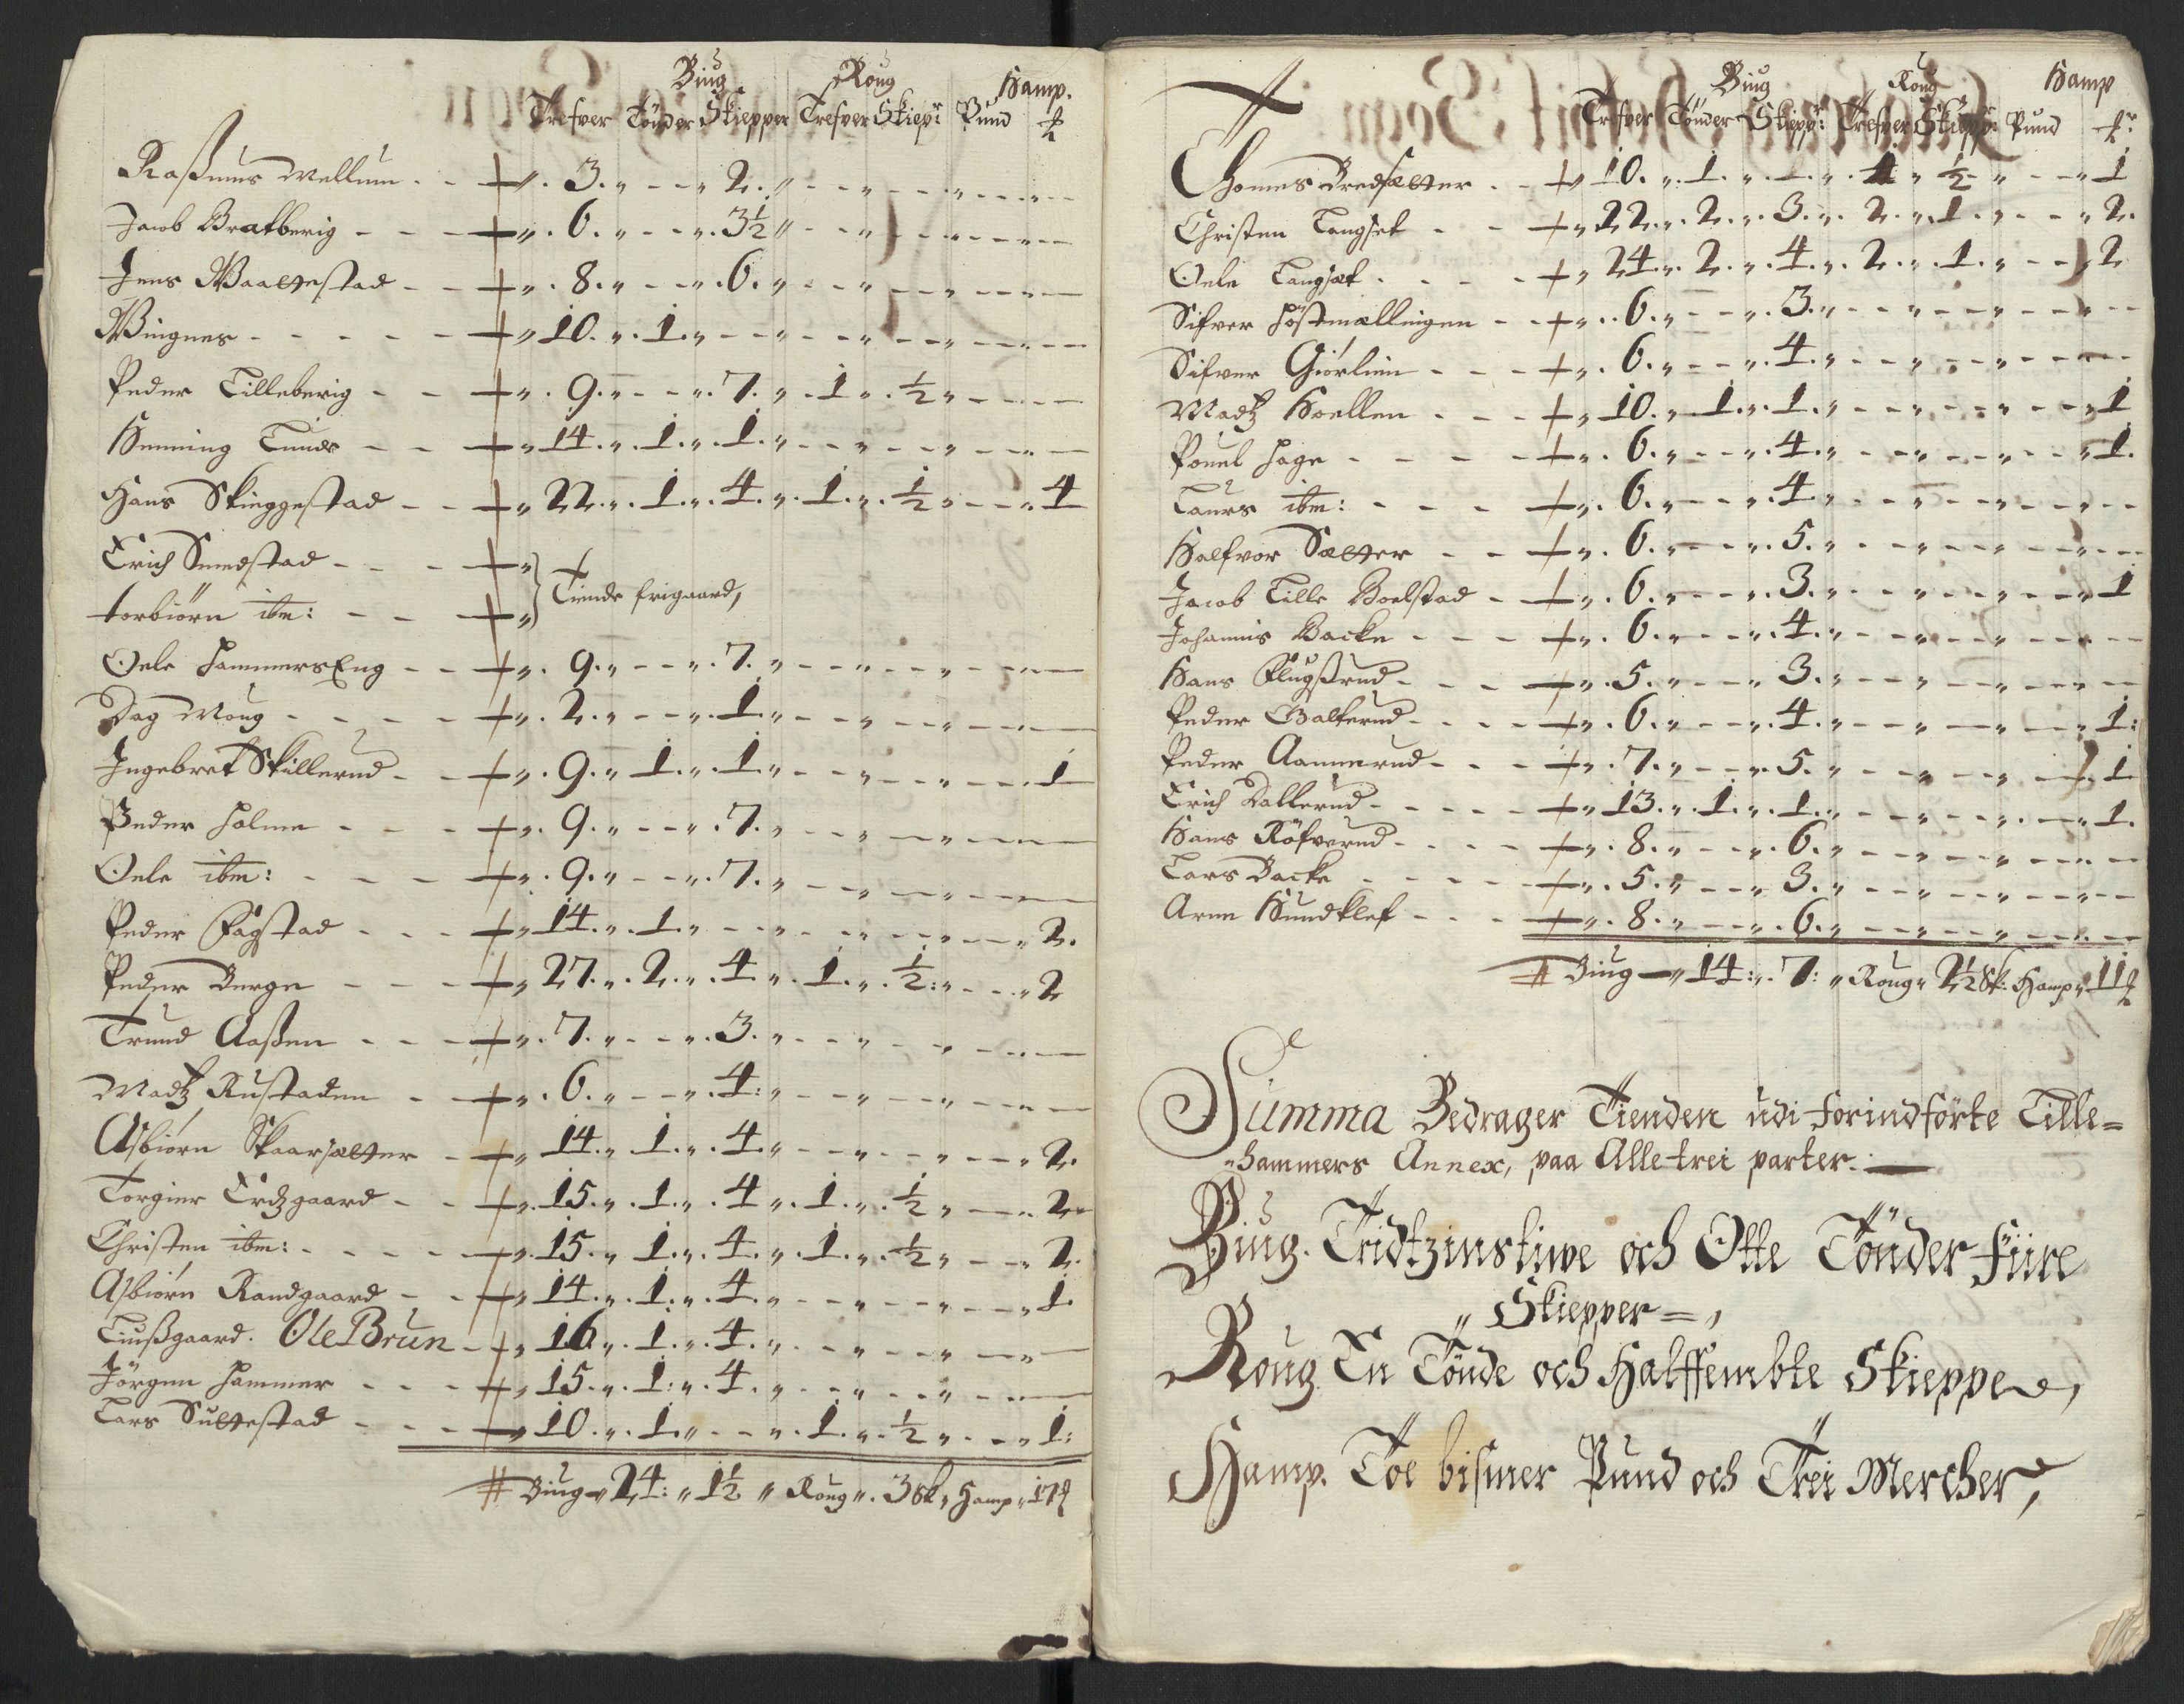 Biug Roug Hamp.
Trefver Tönder Skiepper Trefver Skiepr Pund ℔
Rasmus Mellum - - + „. 3. „ - - „ 2. „ - - „
Jacob Bratberig - - + „. 6. „ - - „. 3½ „ - - „
Jens Waallestad - - + „. 8. „ - - „. 6. „ - - „
Wingnes - - - - + „ 10. „. 1. „ - - „ - - „
Peder Lilleberig - - + „. 9. „ - - „. 7. „. 1 „. ½ „
Henning Lunde - - + „ 14. „. 1. „. 1. „ - - „
Hans Skieggestad - - + „ 22. „. 1. „. 4. „. 1. „. ½ „ - - „ 4
Erich Smedstad - - + „
Tiende frigaard,
torbiörn ibm: - - + „
Oele HammersEng - - + „. 9. „ - - „. 7. „ - - „
Dag Moug - - - + „. 2. „ - - „. 1. „ - - „
Ingebret Skillerud - - + „. 9. „ 1. „. 1. „ - - „ - - 1
Peder Holme - - - + „. 9. „ - - „. 7. „ - - „
Oele ibm: - - - + „. 9. „ - - „. 7. „ - - „
Peder Fagstad - - - + „ 14. „. 1. „ - - „ - - „ 2.
Peder Berge - - - + „ 27. „. 2. „. 4. „. 1. „. ½: „ - - „ 2
Trund Aassen - - - + „. 7. „ - - „. 3. „ - - „
Madtz Rustaden - - + „. 6. „ - - „. 4: „ - - „
Asbiörn Skaarsætter - + „ 14. „. 1. „. 4. „ - - „ - - „ 2.
Torgier Erdzgaard - - + „. 15. „. 1. „. 4. „. 1. „. ½ „ - - 2.
Christen ibm: - - - + „. 15. „ 1. „. 4. „. 1. „. ½ „ - - „ 2.
Asbiörn Randgaard - - + „ 14. „. 1: „. 4. „ - - „ - - „ 1.
Liussgaard. Ole Brun - + „ 16 „. 1. „. 4. „ - - „
Jörgen Hammer - - - + „ 15. „. 1: „. 4. „ - - „
Lars Sultestad - - - + „ 10. „. 1. „ - - „. 1. „. ½ „ - - „ 1:
# Biug „ 24: „ 1½ „ Roug „. 3 Sk, Hamp „ 17 ℔
Biug Roug Hamp
Trefver Tönder Skiepp: Trefver Skiepp: Pund ℔:
Thomes Bredsætter - - + „ 10. „. 1. „. - „. 1 „ ½ „ - - „ 1
Christen Langset - - + „ 22. „. 2. „. 3. „. 2. „. 1. „ - - „ 2.
Oele Langsæt - - - + „ 24. „. 2. „. 4. „. 2. „. 1. „ - - „ 2
Sifver Höstmællingen - - + „. 6. „ - - „. 3. „ - - „
Sifver Giörlien - - - + „. 6. „ - - „. 4. „ - - „
Madtz Koellen - - - + „ 10. „. 1. „. 1. „ - - „ - - „ 1
Pouel Hage - - - + „. 6. „ - - „. 4. „ - - „ - - „ 1.
Laurs ibm: - - - + „. 6. „ - - „. 4. „ - - „
Halfvor Sætter - - + „. 6. „ - - „. 5. „ - - „
Jacob Lille Boelstad - + „. 6. „ - - „. 3. „ - - „ - - „ 1
Johannis Backe - - - + „. 6. „ - - „. 4. „ - - „
Hans Flugssrud - - - + „. 5. „ - - „ 3. „ - - „
Peder Balterud - - - + „. 6. „ - - „. 4. „ - - „ - - „ 1:
Peder Aamerud - - - + „. 7. „ - - „. 5. „ - - „ - - „ 1
Erich Dallerud - - - + „ 13. „. 1. „. 1. „ - - „ - - „ 1.
Hans Röfverud - - - + „. 8. „ - - „. 6. „ - - „
Lars Backe - - - + „. 5. „ - - „ 3. „ - - „
Arne Hundklef - - - + „. 8. „ - - „. 6. „ - - „
# Biug - „ 14: „. 7: „ Roug „ 2½ Sk: Hamp „ 11 ℔
Summa Bedrager Tienden udi forindförte Lille=
„hammers Annex, paa Alle trei parter.
Biug. Tridtzinstiwe och Otte Tönder fiire
„ Skiepper =,
Roug En Tönde och Halffembte Skieppe,
Hamp. Toe bismer Pund och Trei Mercher,